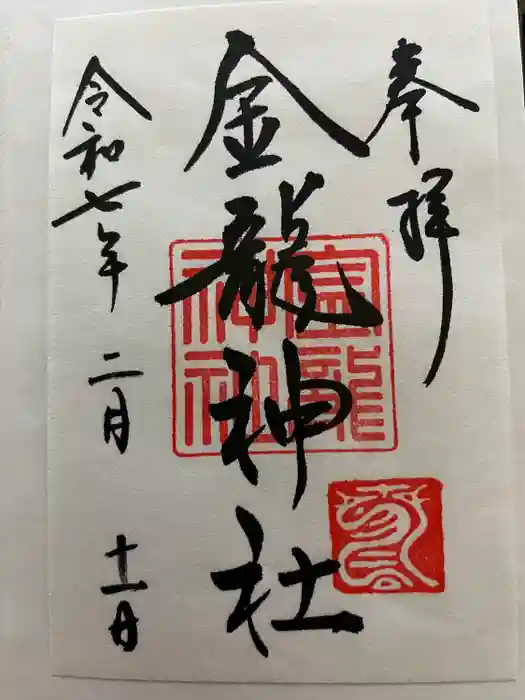 奉拝
金龍神社
金龍神社
令和七年二月十一日